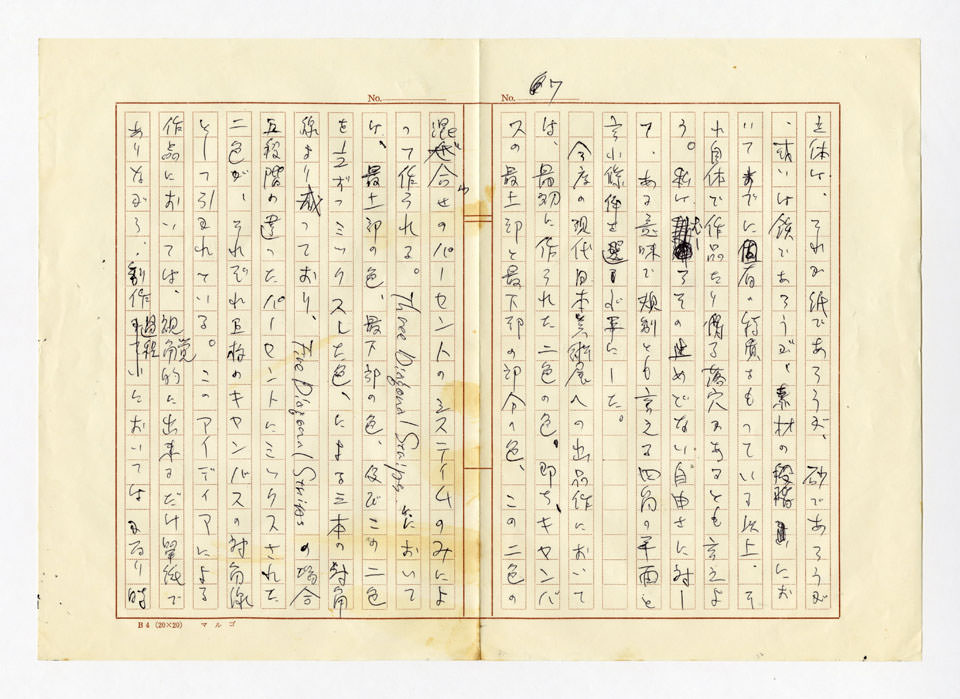 No. 7
立体は、それが紙であろうが、砂であろうが
、或いは鉄であろうが、素材の段階にお
いてすでに固有の特質をもっている以上、そ
れ自体で作品たり得る落穴があるとも言えよ
う。私は、むしろその止めどない自由さに対し
て、ある意味で規制とも言える四角の平面と
言う条件を選ぶ事にした。
今度の現代日本美術展への出品作において
は、最初に作られた二色の色。即ち、キャンバ
スの最上部と最下部の部分の色、この二色の
No.
混ぜ合わせのパーセントのシステイムのみによ
って作られる。Three Diagonal Straips において
は、最上部の色、最下部の色、及びこの二色
を1/2ずつミックスした色、による三本の対角
線より成っており、Five Diagonal Straips の場合
五段階の違ったパーセントにミックスされた
二色が、それぞれ五枚のキャンバスの対角線
として引かれている。このアイディアによる
作品においては、視覚的に出来るだけ単純で
ありながら、制作過程においてはかなり時
B4 (20×20) マルゴ